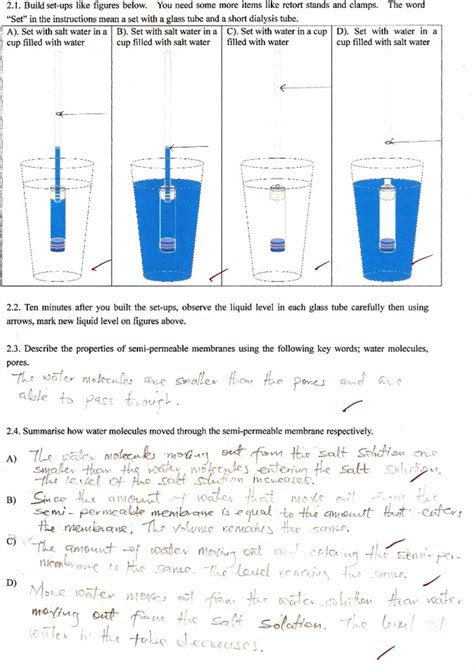 2.1. Build set-ups like figures below. You need some more items like retort stands and clamps. The word
"Set" in the instructions mean a set with a glass tube and a short dialysis tube.
A). Set with salt water in a cup filled with water
B). Set with salt water in a cup filled with salt water
C). Set with water in a cup filled with water
D). Set with water in a cup filled with salt water
2.2. Ten minutes after you built the set-ups, observe the liquid level in each glass tube carefully then using
arrows, mark new liquid level on figures above.
2.3. Describe the properties of semi-permeable membranes using the following key words; water molecules,
pores.
The water molecules are smaller than the pores and are
able to pass through.
2.4. Summarise how water molecules moved through the semi-permeable membrane respectively.
A) The water molecules moving out from the salt solution are
smaller than the water molecules entering the salt solution.
The level of the salt solution increases.
B) Since the amount of water that move out from the
semi-permeable membrane is equal to the amount that enters
the membrane, The volume remains the same.
C) The amount of water moving out and entering the semi-per-
membrane is the same. The level remains the same.
D) More water moves out from the water solution than water
moving out from the salt solution. The level of
water in the tube decreases.